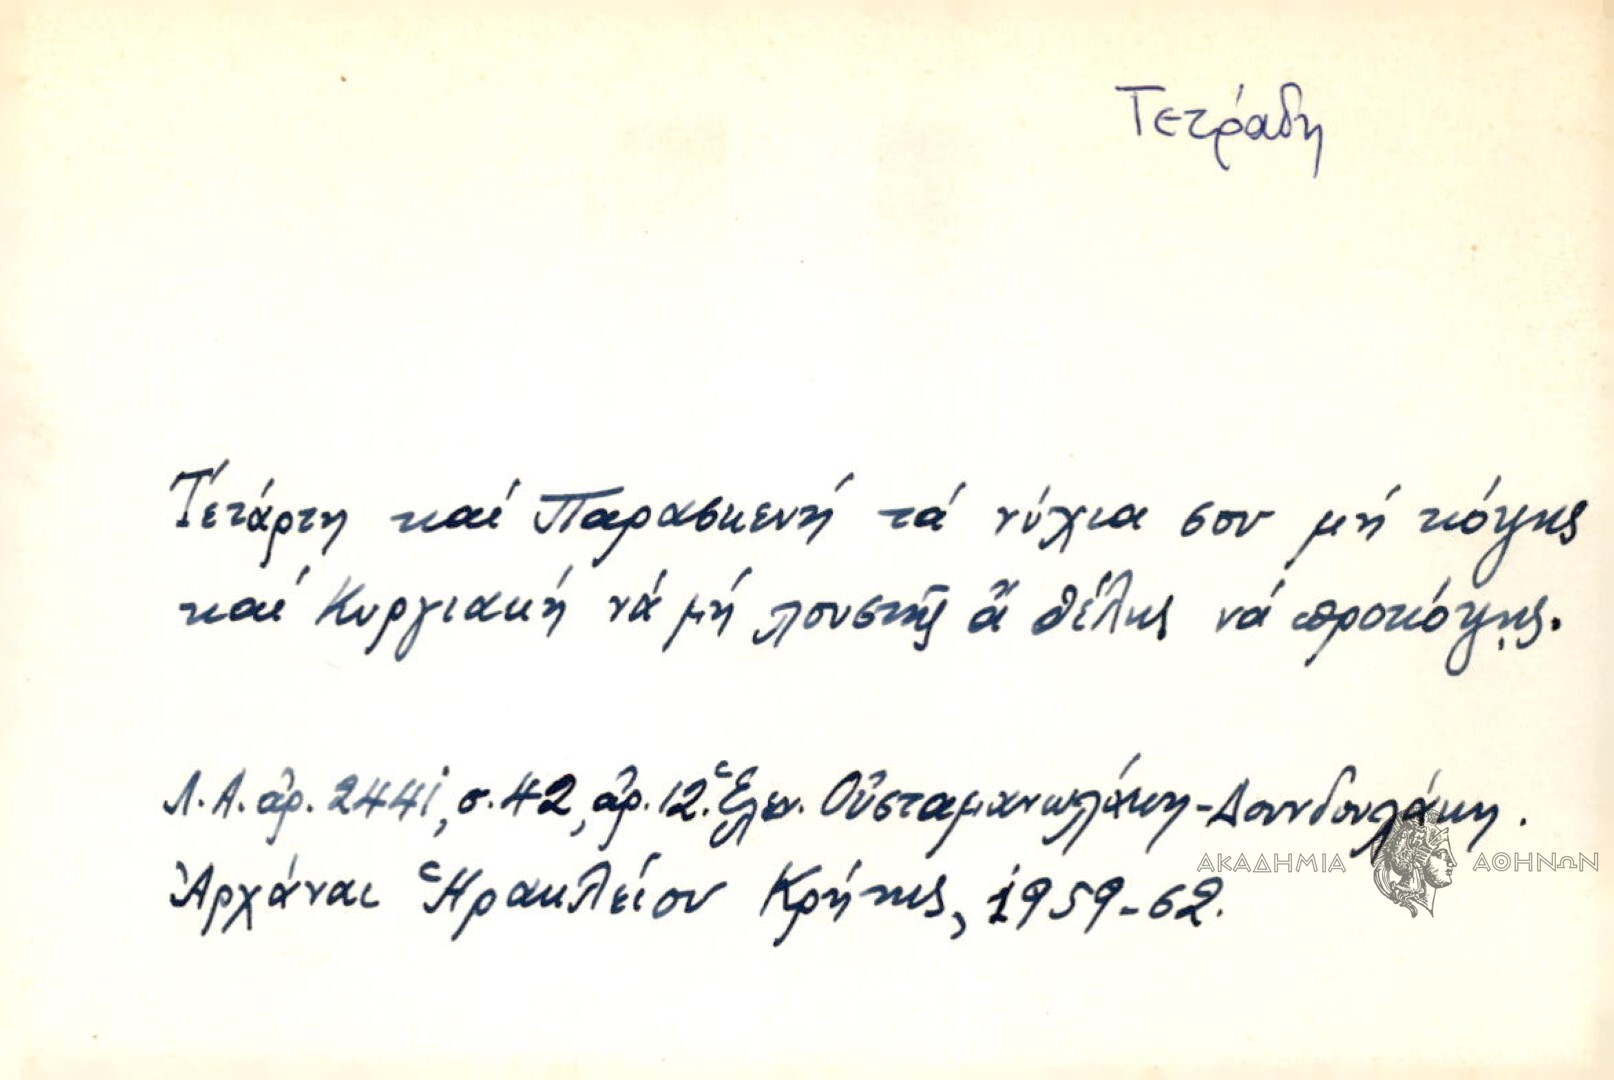 Τετράδη
Τετάρτη καί Παρασκευή τά νύχια σου μή κόψης
καί Κυργιακή νά μή λουστῆς ἄ θέλης νά προκόψης.
Λ.Α. ἀρ. 2441, σ. 42, ἀρ. 12. Ἑλεν. Οὐσταμανωλάκη-Δουνδουλάκη.
Ἀρχάναι Ἡρακλείου Κρήτης, 1959-62.
ΑΚΑΔΗΜΙΑ ΑΘΗΝΩΝ